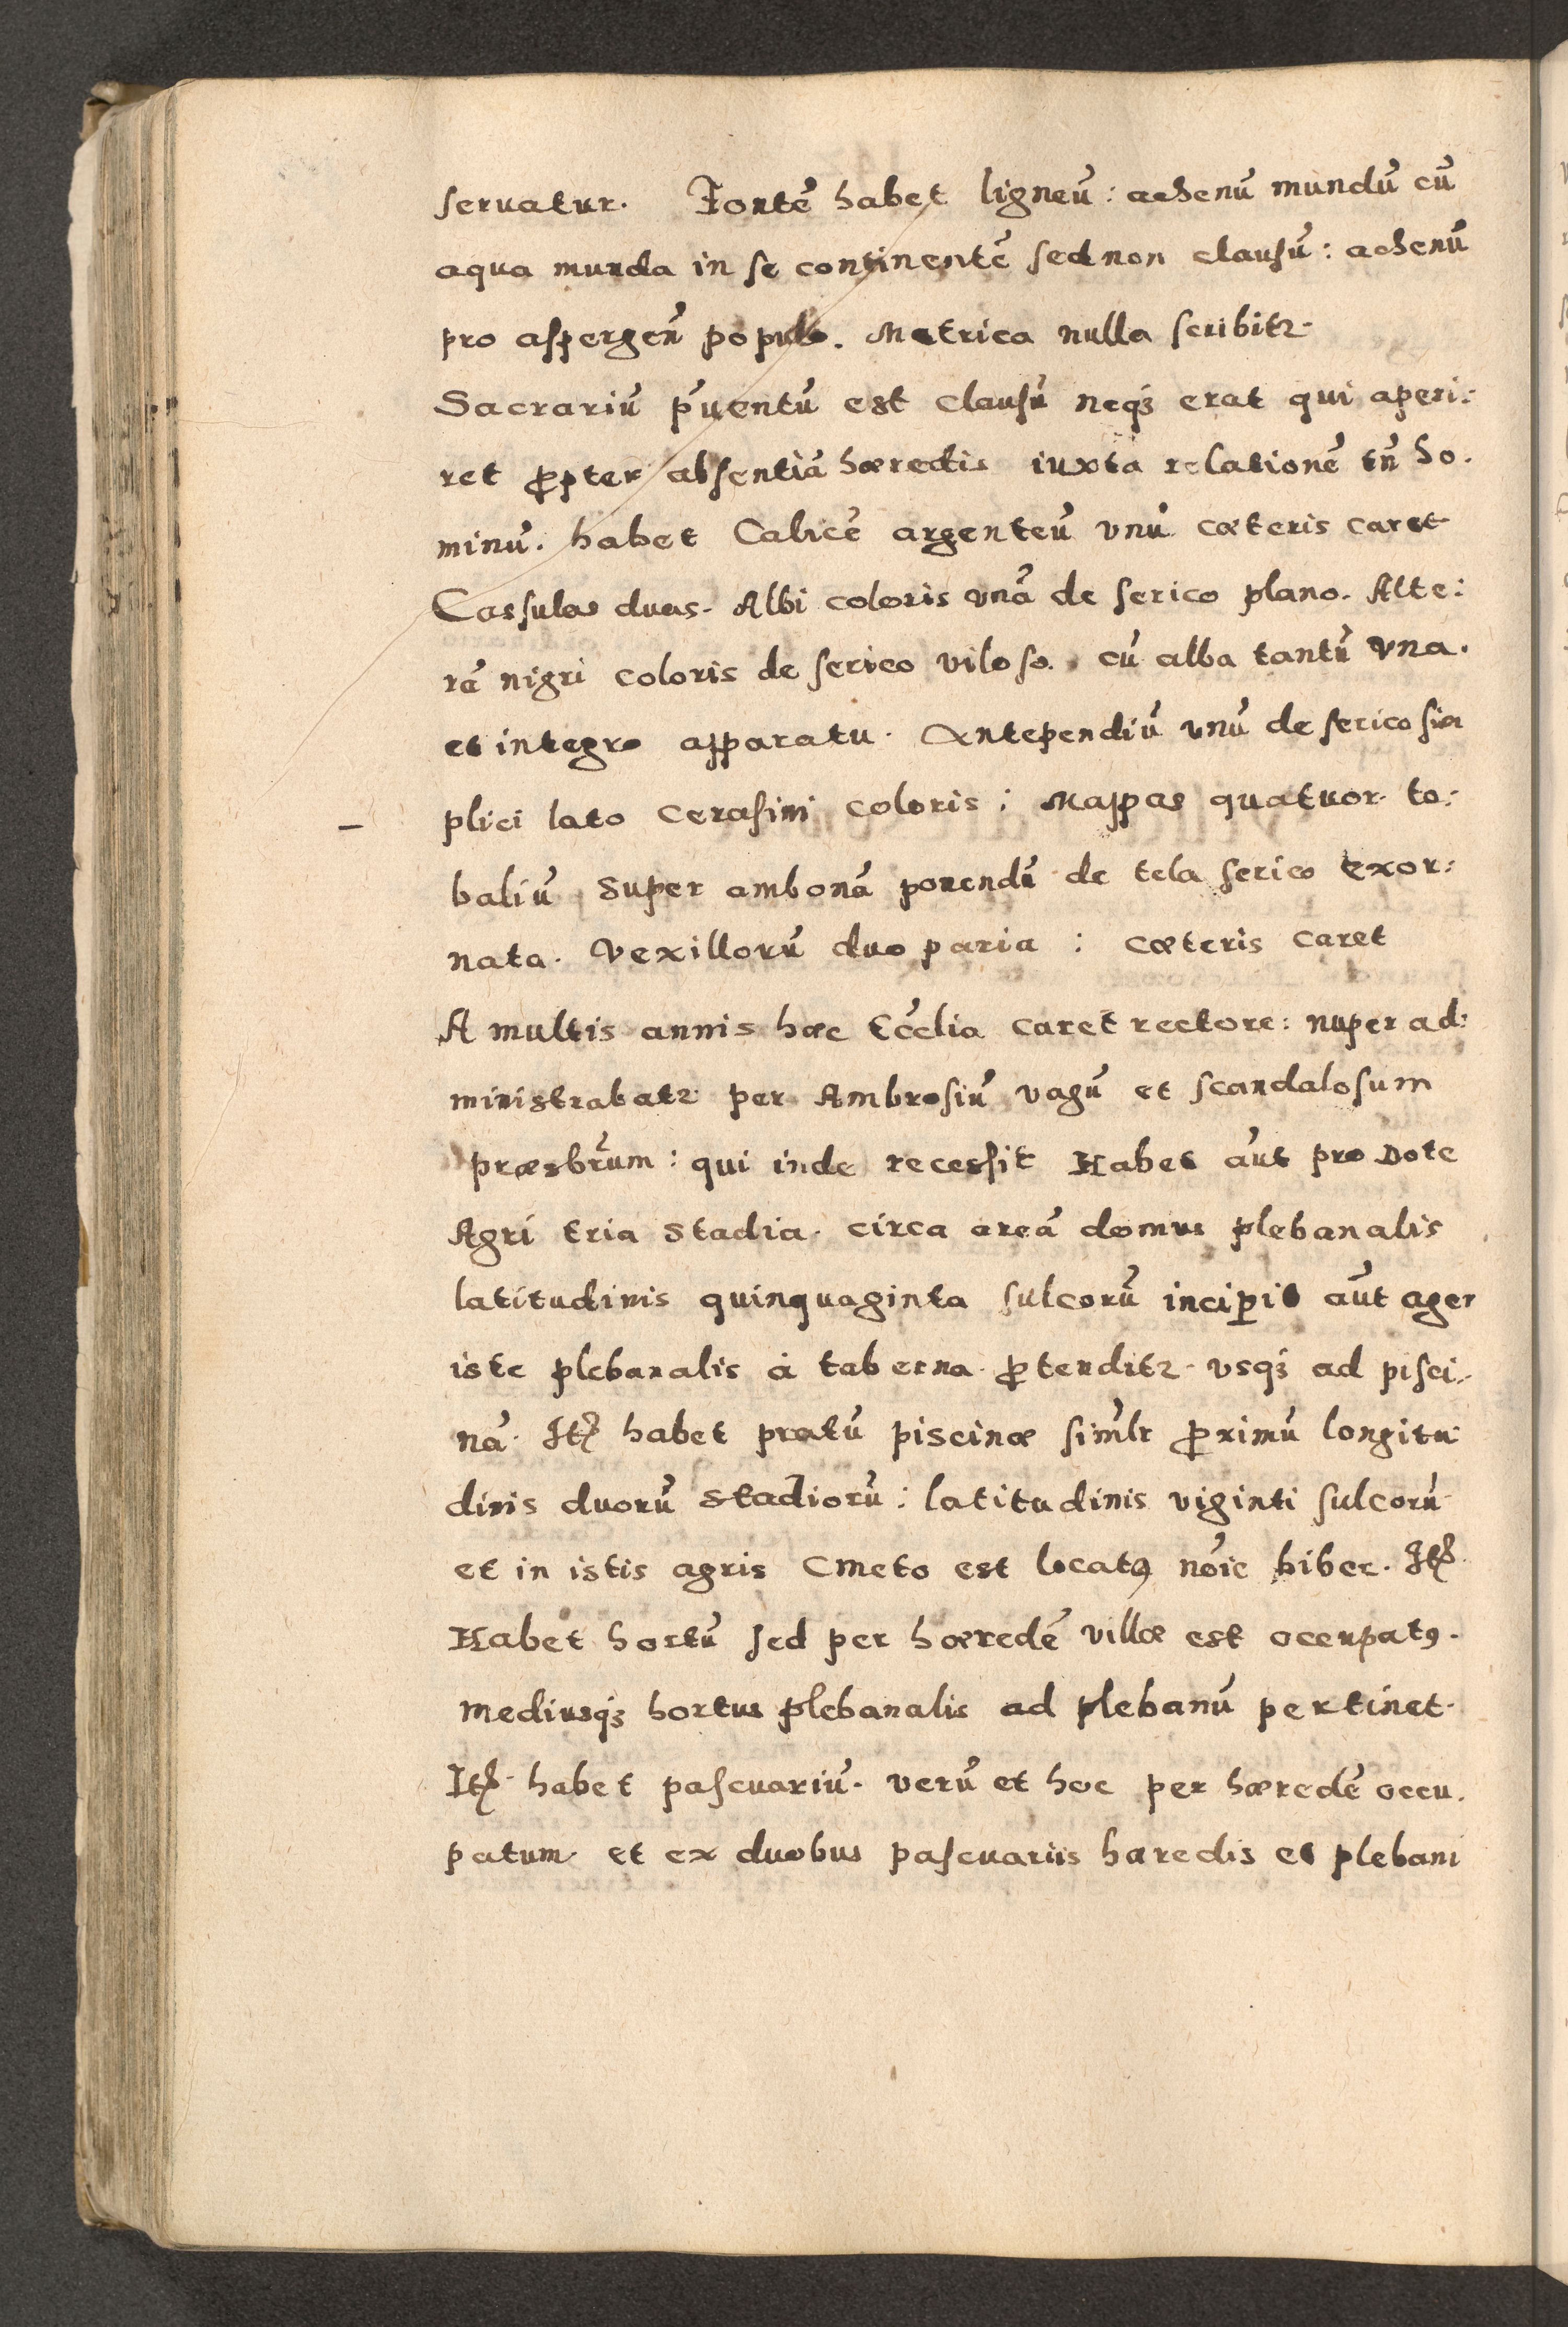 seruatur. Fontē habet ligneū: achenū mundū cū
aqua munda in se continentē sed non clausū: achenū
pro aspergen̄ populo. Metrica nulla scribitꝛ.
Sacrariū p̄uentū est clausū neqꝫ erat qui aperi:
ret ꝓpter absentiā hæredis iuxta relationē tn̄ ho.
minū. habet Calicē argenteū vnū cæteris caret
Cassulas duas. Albi coloris vnā de serico plano. Alte:
rā nigri coloris de serico viloso. cū alba tantū vna.
et integro apparatu. Antependiū vnū de serico sim
plici lato cerasini coloris: Mappas quatuor to:
baliū super ambonā ponendū de tela serico exor:
nata. Vexillorū duo paria: cæteris caret
A multis annis hæc Eccĺia caret rectore: nuper ad:
ministrabatꝛ per Ambrosiū vagū et scandalosum
præsbr̄um: qui inde recessit Habet aūt pro Dote
Agri tria stadia. circa areā domus plebanalis
latitudinis quinquaginta sulcorū incipit aūt ager
iste plebanalis à taberna ꝓtenditꝛ usqꝫ ad pisci..
nā. Itꝫ habet pratū piscinæ simlr̄ ꝓximū longitu
dinis duorū stadiorū: latitudinis viginti sulcorū
et in istis agris Cmeto est locatꝰ nōie biber. Itꝫ
Habet hortū sed per hæredē villæ est occupatꝰ.
mediusqꝫ hortus plebanalis ad plebanū pertinet.
Itꝫ habet pascuariū. verū et hoc per hæredē occu.
patum et ex duobus pascuariis hæredis et plebani